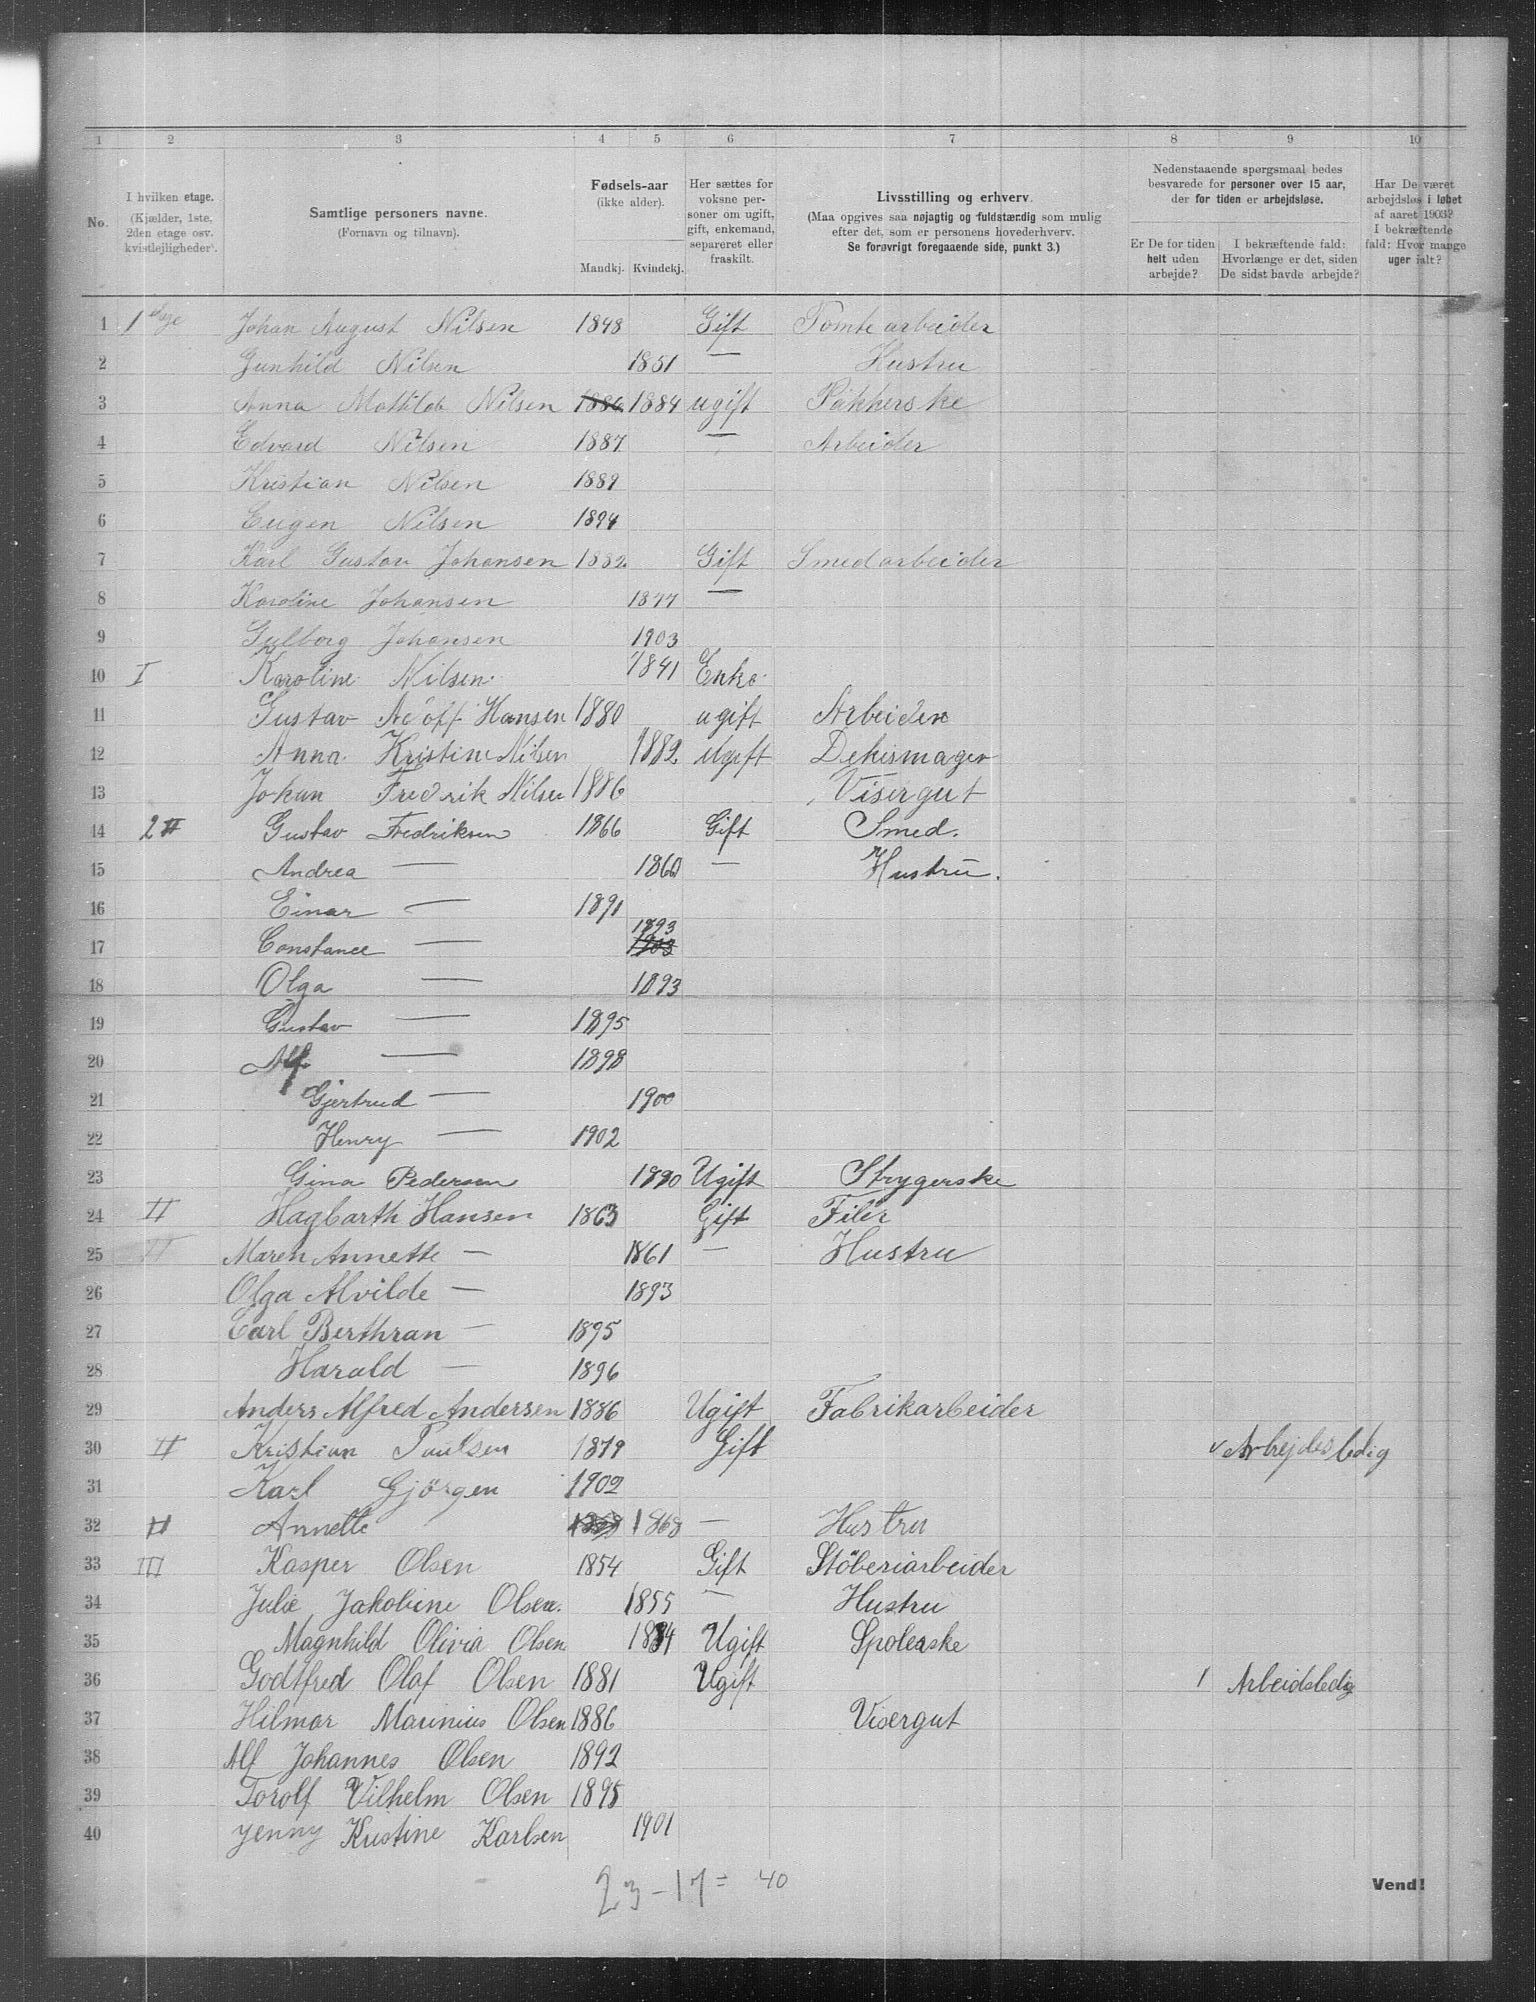 1 2 3 4 5 6 7 8 9 10
No. I hvilken etage. (Kjælder, 1ste, 2den etage osv. kvistlejligheder). Samtlige personers navne. (Fornavn og tilnavn). Fødsels-aar (ikke alder). Mandkj. Kvindekj. Her sættes for voksne personer om ugift, gift, enkemand, separeret eller fraskilt. Livsstilling og erhverv. (Maa opgives saa nøjagtig og fuldstændig som mulig efter det, som er personens hovederhverv. Se forøvrigt foregaaende side, punkt 3.) Nedenstaaende spørgsmaal bedes besvarede for personer over 15 aar, der for tiden er arbejdsløse. Er De for tiden helt uden arbejde? I bekræftende fald: Hvorlænge er det, siden De sidst havde arbejde? Har De været arbejdsløs i løbet af aaret 1903? I bekræftende fald: Hvor mange uger ialt?
1 1 Etage Johan August Nilsen 1848 Gift Tomtearbeider
2 Gunhild Nilsen 1851 — Hustru
3 Anna Mathilda Nilsen 1886 1884 ugift Pakkerske
4 Edvard Nilsen 1887 — Arbeider
5 Kristian Nilsen 1889
6 Eugen Nilsen 1894
7 Karl Gustav Johansen 1882 Gift Smedarbeider
8 Karoline Johansen 1877 —
9 Gulborg Johansen 1903
10 I Karoline Nilsen. 1841 Enke.
11 Gustav Adolf Hansen 1880 ugift Arbeider
12 Anna Kristine Nilsen 1882 ugift Dekismager
13 Johan Fredrik Nilsen 1886 Visergut
14 2 II Gustav Fredriksen 1866 Gift Smed.
15 Andrea — 1860 — Hustru.
16 Einar — 1891
17 Constance — 1893 1903
18 Olga — 1893
19 Gustav — 1895
20 Alf — 1898
21 Gjertrud — 1900
22 Henry — 1902
23 Gina Pedersen 1880 Ugift Strygerske
24 II Hagbarth Hansen 1863 Gift Filer
25 II Maren Annette — 1861 — Hustru
26 Olga Alvilde — 1893
27 Carl Berthran — 1895
28 Harald — 1896
29 Anders Alfred Andersen 1886 Ugift Fabrikarbeider
30 II Kristian Paulsen 1879 Gift v Arbejdesledig
31 Karl Gjörgen 1902
32 II Annette 1868 — Hustru
33 III Kasper Olsen 1854 Gift Stöberiarbeider
34 Julie Jakobine Olsen. 1855 — Hustru
35 Magnhild Olivia Olsen 1884 Ugift Spolerske
36 Godtfred Olaf Olsen 1881 Ugift 1 Arbeidsledig
37 Hilmar Marinius Olsen 1886 Visergut
38 Alf Johannes Olsen 1892
39 Torolf Vilhelm Olsen 1895
40 Jenny Kristine Karlsen 1901
23 - 17 = 40
Vend!